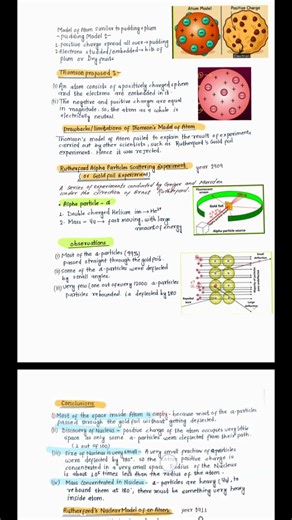 Model of Atom similar to pudding & plum
- Pudding Model :-
1. Positive charge spread all over → pudding
2. Electrons studded/embedded → bits of
plum or Dry fruits
Atom Model
Positive Charge
Thomson proposed :-
(i) An atom consists of a positively charged sphere
and the electrons are embedded in it.
(ii) The negative and positive charge are equal
in magnitude. So, the atom as a whole is
electrically neutral.
Drawbacks/limitations of Thomson's Model of Atom
Thomson's model of Atom failed to explain the result of experiments
carried out by other scientists, such as Rutherford's Gold foil
experiment. Hence it was rejected.
Rutherford Alpha Particles Scattering Experiment
(or Gold foil Experiment)
year 1909
A Series of experiments conducted by Geiger and Marsden
under the direction of Ernest Rutherford.
• Alpha particle - α
1. Double charged Helium ion → He²⁺
2. Mass - 4u → fast moving, with large
amount of energy
Gold foil
Alpha particle source
Observations
(i) Most of the α-particles (99%)
passed straight through the gold foil.
(ii) Some of the α-particles were deflected
by small angles.
(iii) Very few (one out of every 12000 α-particles
particles rebounded i.e deflected by 180
Conclusions
(i) Most of the space inside Atom is empty- because most of the α-particles
passed through the gold foil without getting deflected.
(ii) Discovery of Nucleus - positive charge of the atom occupies very little
space as only some α-particles were deflected from their path.
(iii) Size of Nucleus is very small - A very small fraction of α-particles
were deflected by 180° so the positive charge is
concentrated in a very small space. Radius of the Nucleus
is about 10⁵ times less than the radius of the atom.
(iv) Mass Concentrated in Nucleus - α-particles are heavy (4u), to
rebound them at 180°, there must be something very heavy
inside atom.
Rutherford's Nuclear Model of an Atom